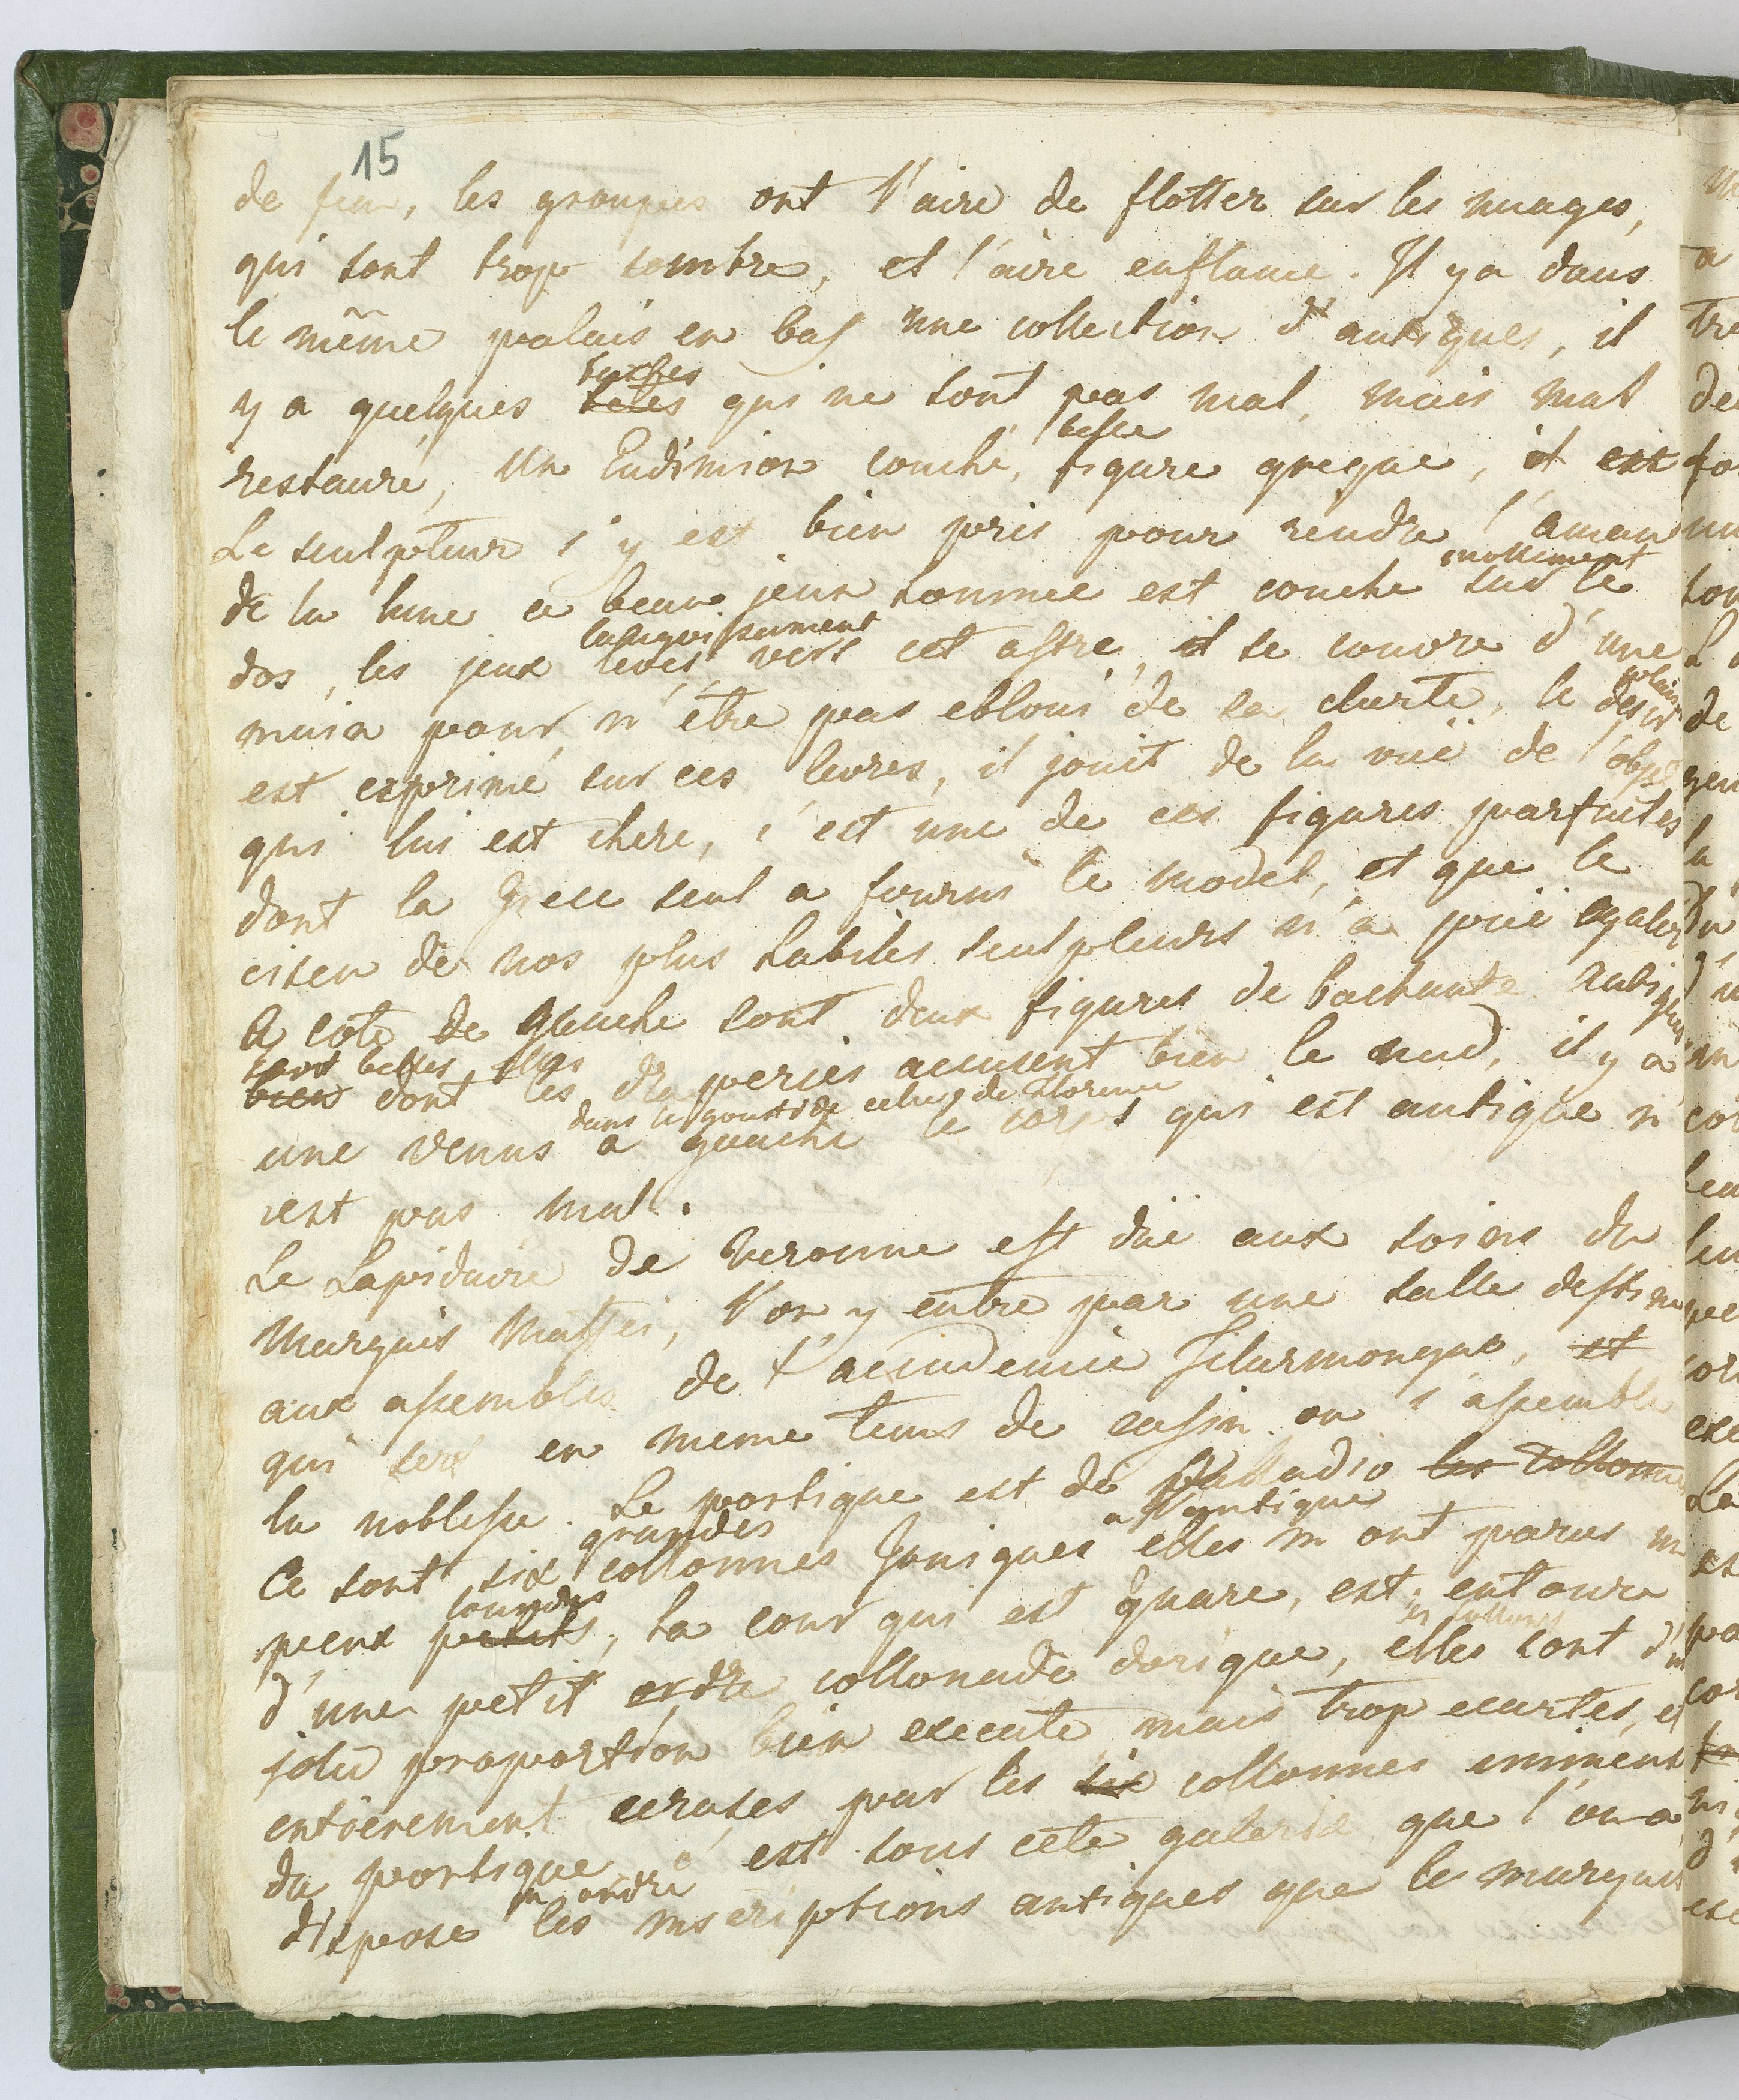 15
de feu, les groupes ont l'aire de flotter sur les nuages,
qui sont trop sombre, et l'aire enflamé. Il y a dans
le même palais en bas une collection d'antiques, il
bustes
y a quelques têtes qui ne sont pas mal, mais mal
belle
restauré, un Endimion couché, figure greque, il est
Le sculpteur s'y est bien pris pour rendre l'aman
mollement
de la lune ce beau jeun homme est couché sur le
languissament
dos, les jeux levés vers cet astre, il se couvre d'une
main pour n'être pas eblouï de sa clarté, le desir
est exprimé sur ces levres, il jouit de la vuë de l'objet
qui lui est chere, c'est une de ces figures parfaites
dont la Grece seul a fourni le model, et que le
cisen de nos plus habiles sculpteurs n'a puë egaler
A coté de gauche sont deux figures de bachante antique
sont belles elles
bien dont les draperies accusent bien le nud, il y a
dans le goust de celle de Florence
une venus a gauche le corps qui est antique n'
iest pas mal.
Le Lapidaire de Veronne est duë aux soins du
Marquis Maffei, l'on y entre par une salle destiné
aux assemblés de l'academie filarmonque, et
qui sert en meme tems de casin ou s'assemble
la noblesse. Le portique est de Palladio les collonnes
grandes a l'antique
Ce sont six collonnes Joniques elles m'ont parus un
lourdes
peux petits, la cour qui est quaré, est entouré
les collones
d'une petit ordre collonade dorique, elles sont d'un
jolie proportion bien executé mais trop ecartés, et
entierement ecrasés par les six collonnes eminent
du portique c'est sous cete galerie que l'on a
en ordre
disposé les inscriptions antiques que le marquis